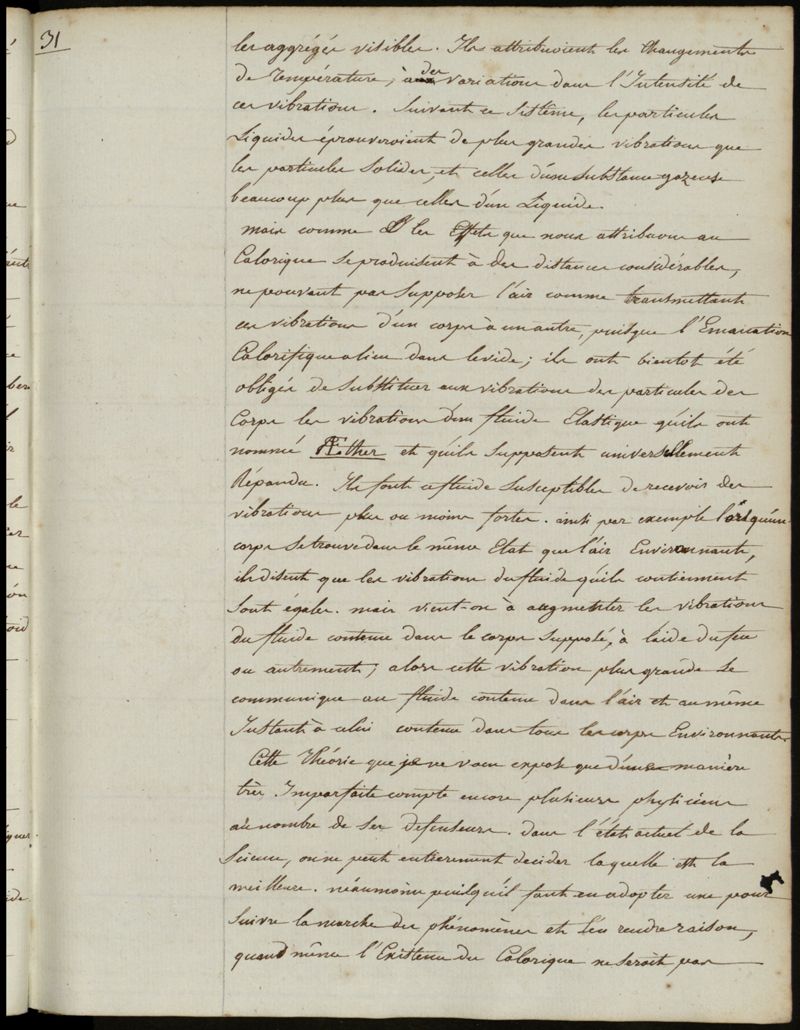 31
les aggrégés visibles. Ils attribuoient les changements
de température, à des variations dans l'Intensité de
ces vibrations. Suivant ce Sistème, les particules
Liquides éprouveroient de plus grandes vibrations que
les particules Solides, et celles d'une substance gazeuse
beaucoup plus que celles d'un Liquide.
mais comme les Effets que nous attribuons au
Calorique se produisent à des distances considérables,
ne pouvant pas supposer l'air comme transmettant
ces vibrations d'un corps à un autre, puisque l'Emanation
Calorifique a lieu dans le vide; ils ont bientot été
obligés de substituer aux vibrations des particules des
Corps les vibrations d'un fluide Elastique qu'ils ont
nommé Æther et qu'ils supposent universellement
Répandu. Ils font ce fluide susceptible de recevoir des
vibrations plus ou moins fortes. ainsi par exemple lorsqu'un
corps se trouve dans le même Etat que l'air Environnant,
ils disent que les vibrations du fluide qu'ils contiennent
sont égales. mais vient-on à augmenter les vibrations
du fluide contenu dans le corps supposé, à l'aide du feu
ou autrement; alors cette vibration plus grande se
communique au fluide contenu dans l'air et au même
Instant à celui contenu dans tous les corps Environnants
Cette théorie que je ne vous expose que d'une manière
très Imparfaite compte encore plusieurs physiciens
au nombre de ses defenseurs. dans l'état actuel de la
Science, on ne peut entierement decider laquelle est la
meilleure. néaumoins puisqu'il faut en adopter une pour
suivre la marche des phénomènes et s'en rendre raison,
quand même l'Existence du Calorique ne seroit pas